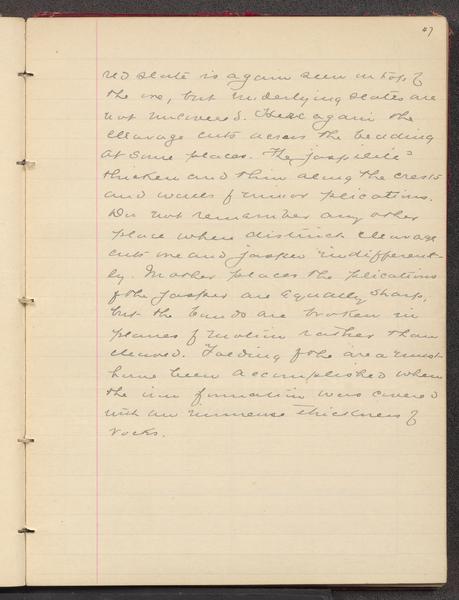 47
red slate is again seen on top of
the ore, but underlying slates are
not uncovered. Here again the
cleavage cuts across the bedding
at some places. The jaspilites
thicken and thin along the crests
and walls of minor plications.
Do not remember any other
place where distinct cleavage
cuts ore and jasper indifferent-
ly. In other places the plications
of the jasper are equally sharp,
but the bands are broken in
planes of motion rather than
cleaved. Folding of the area must
have been accomplished when
the iron formation was covered
with an immense thickness of
rocks.